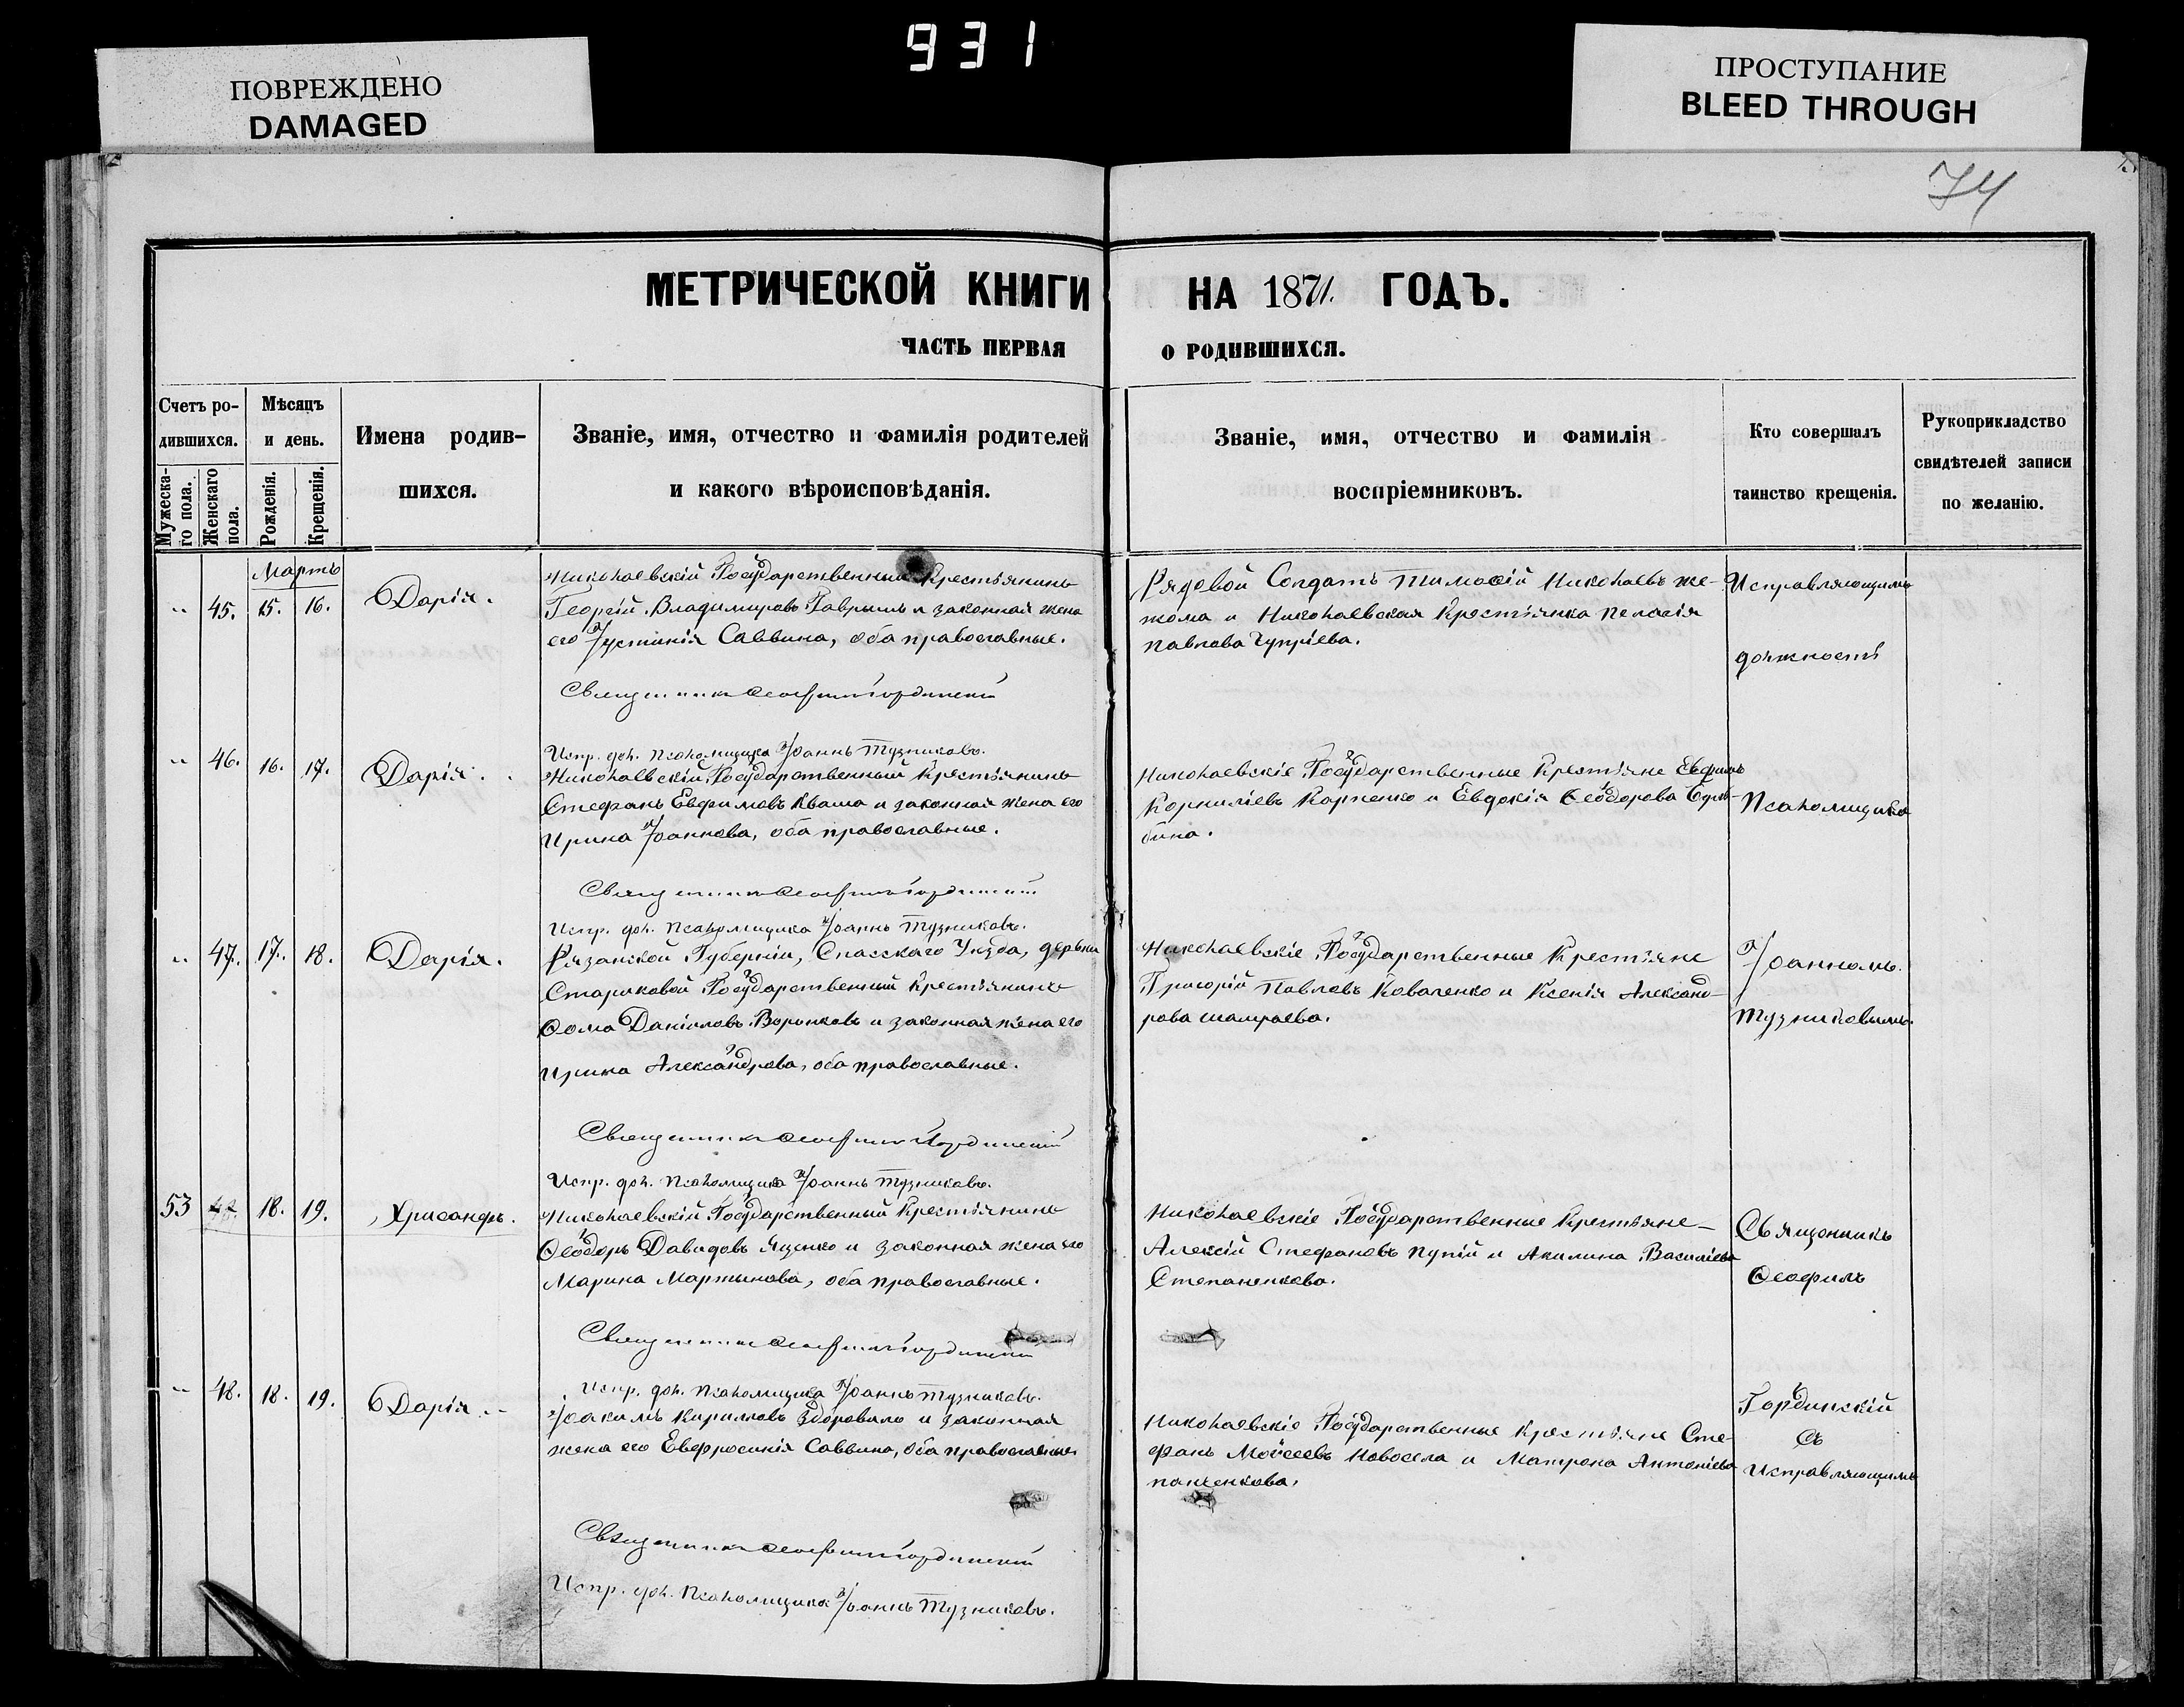 931
ПОВРЕЖДЕНО
DAMAGED
ПРОСТУПАНИЕ
BLEED THROUGH
74
МЕТРИЧЕСКОЙ КНИГИ НА 1871. ГОДЪ.
ЧАСТЬ ПЕРВАЯ О РОДИВШИХСЯ.
Счетъ ро-
дившихся.
Мужеска-
го пола.
Женскаго
пола.
Мѣсяцъ
и день.
Рожденія.
Крещенія.
Имена родив-
шихся.
Званіе, имя, отчество и фамилія родителей
и какого вѣроисповѣданія.
Званіе, имя, отчество и фамилія
воспріемниковъ.
Кто совершалъ
таинство крещенія.
Рукоприкладство
свидѣтелей записи
по желанію.
Мартъ
„ 45. 15. 16. Дарія.
Николаевскій Государственный Крестьянинъ
Георгій Владимировъ Гаврышъ и законная жена
его Іустинія Саввина, оба православные.
Священникъ Ѳеофилъ Гординскій
Испр. дол. Псаломщика Іоаннъ Тузниковъ.
Рядовой Солдатъ Тимоѳій Николаевъ же-
жома и Николаевская Крестьянка Пелагія
Павлова Чупріева.
Исправляющимъ
должность
„ 46. 16. 17. Дарія.
Николаевскій Государственный Крестьянинъ
Стефанъ Евфимовъ Кваша и законная жена его
Ирина Іоаннова, оба православные.
Священникъ Ѳеофилъ Гординскій
Испр. дол. Псаломщика Іоаннъ Тузниковъ.
Николаевскіе Государственные Крестьяне Евфимъ
Корниліевъ Карпенко и Евдокія Ѳеодорова
бина.
Псаломщика
„ 47. 17. 18. Дарія.
Рязанской Губерніи, Спасскаго Уѣзда, дервни
Стариковой Государственный Крестьянинъ
Ѳома Даніиловъ Воронковъ и законная жена его
Ирина Александрова, оба православные.
Священникъ Ѳеофилъ Гординскій
Испр. дол. Псаломщика Іоаннъ Тузниковъ.
Николаевскіе Государственные Крестьяне
Григорій Павловъ Коваленко и Ксенія Александ-
рова Шамраева.
Іоанномъ
Тузниковымъ.
53 48. 18. 19. Хрисанфъ.
Николаевскій Государственный Крестьянинъ
Ѳеодоръ Давидовъ Яценко и законная жена его
Марина Мартынова, оба православные.
Священникъ Ѳеофилъ Гординскій
Испр. дол. Псаломщика Іоаннъ Тузниковъ.
Николаевскіе Государственные Крестьяне
Алексій Стефановъ Пупій и Акилина Василіева
Степаненкова.
Священникъ
Ѳеофилъ
„ 48. 18. 19. Дарія.
Іоакимъ Кириловъ Здоровило и законная
жена его Евфросинія Саввина, оба православные
Священникъ Ѳеофилъ Гординскій
Испр. дол. Псаломщика Іоаннъ Тузниковъ.
Николаевскіе Государственные Крестьяне Сте-
фанъ Моѵсеевъ Новосела и Матрона Антоніева
Панченкова.
Гординскій
Съ
Исправляющимъ